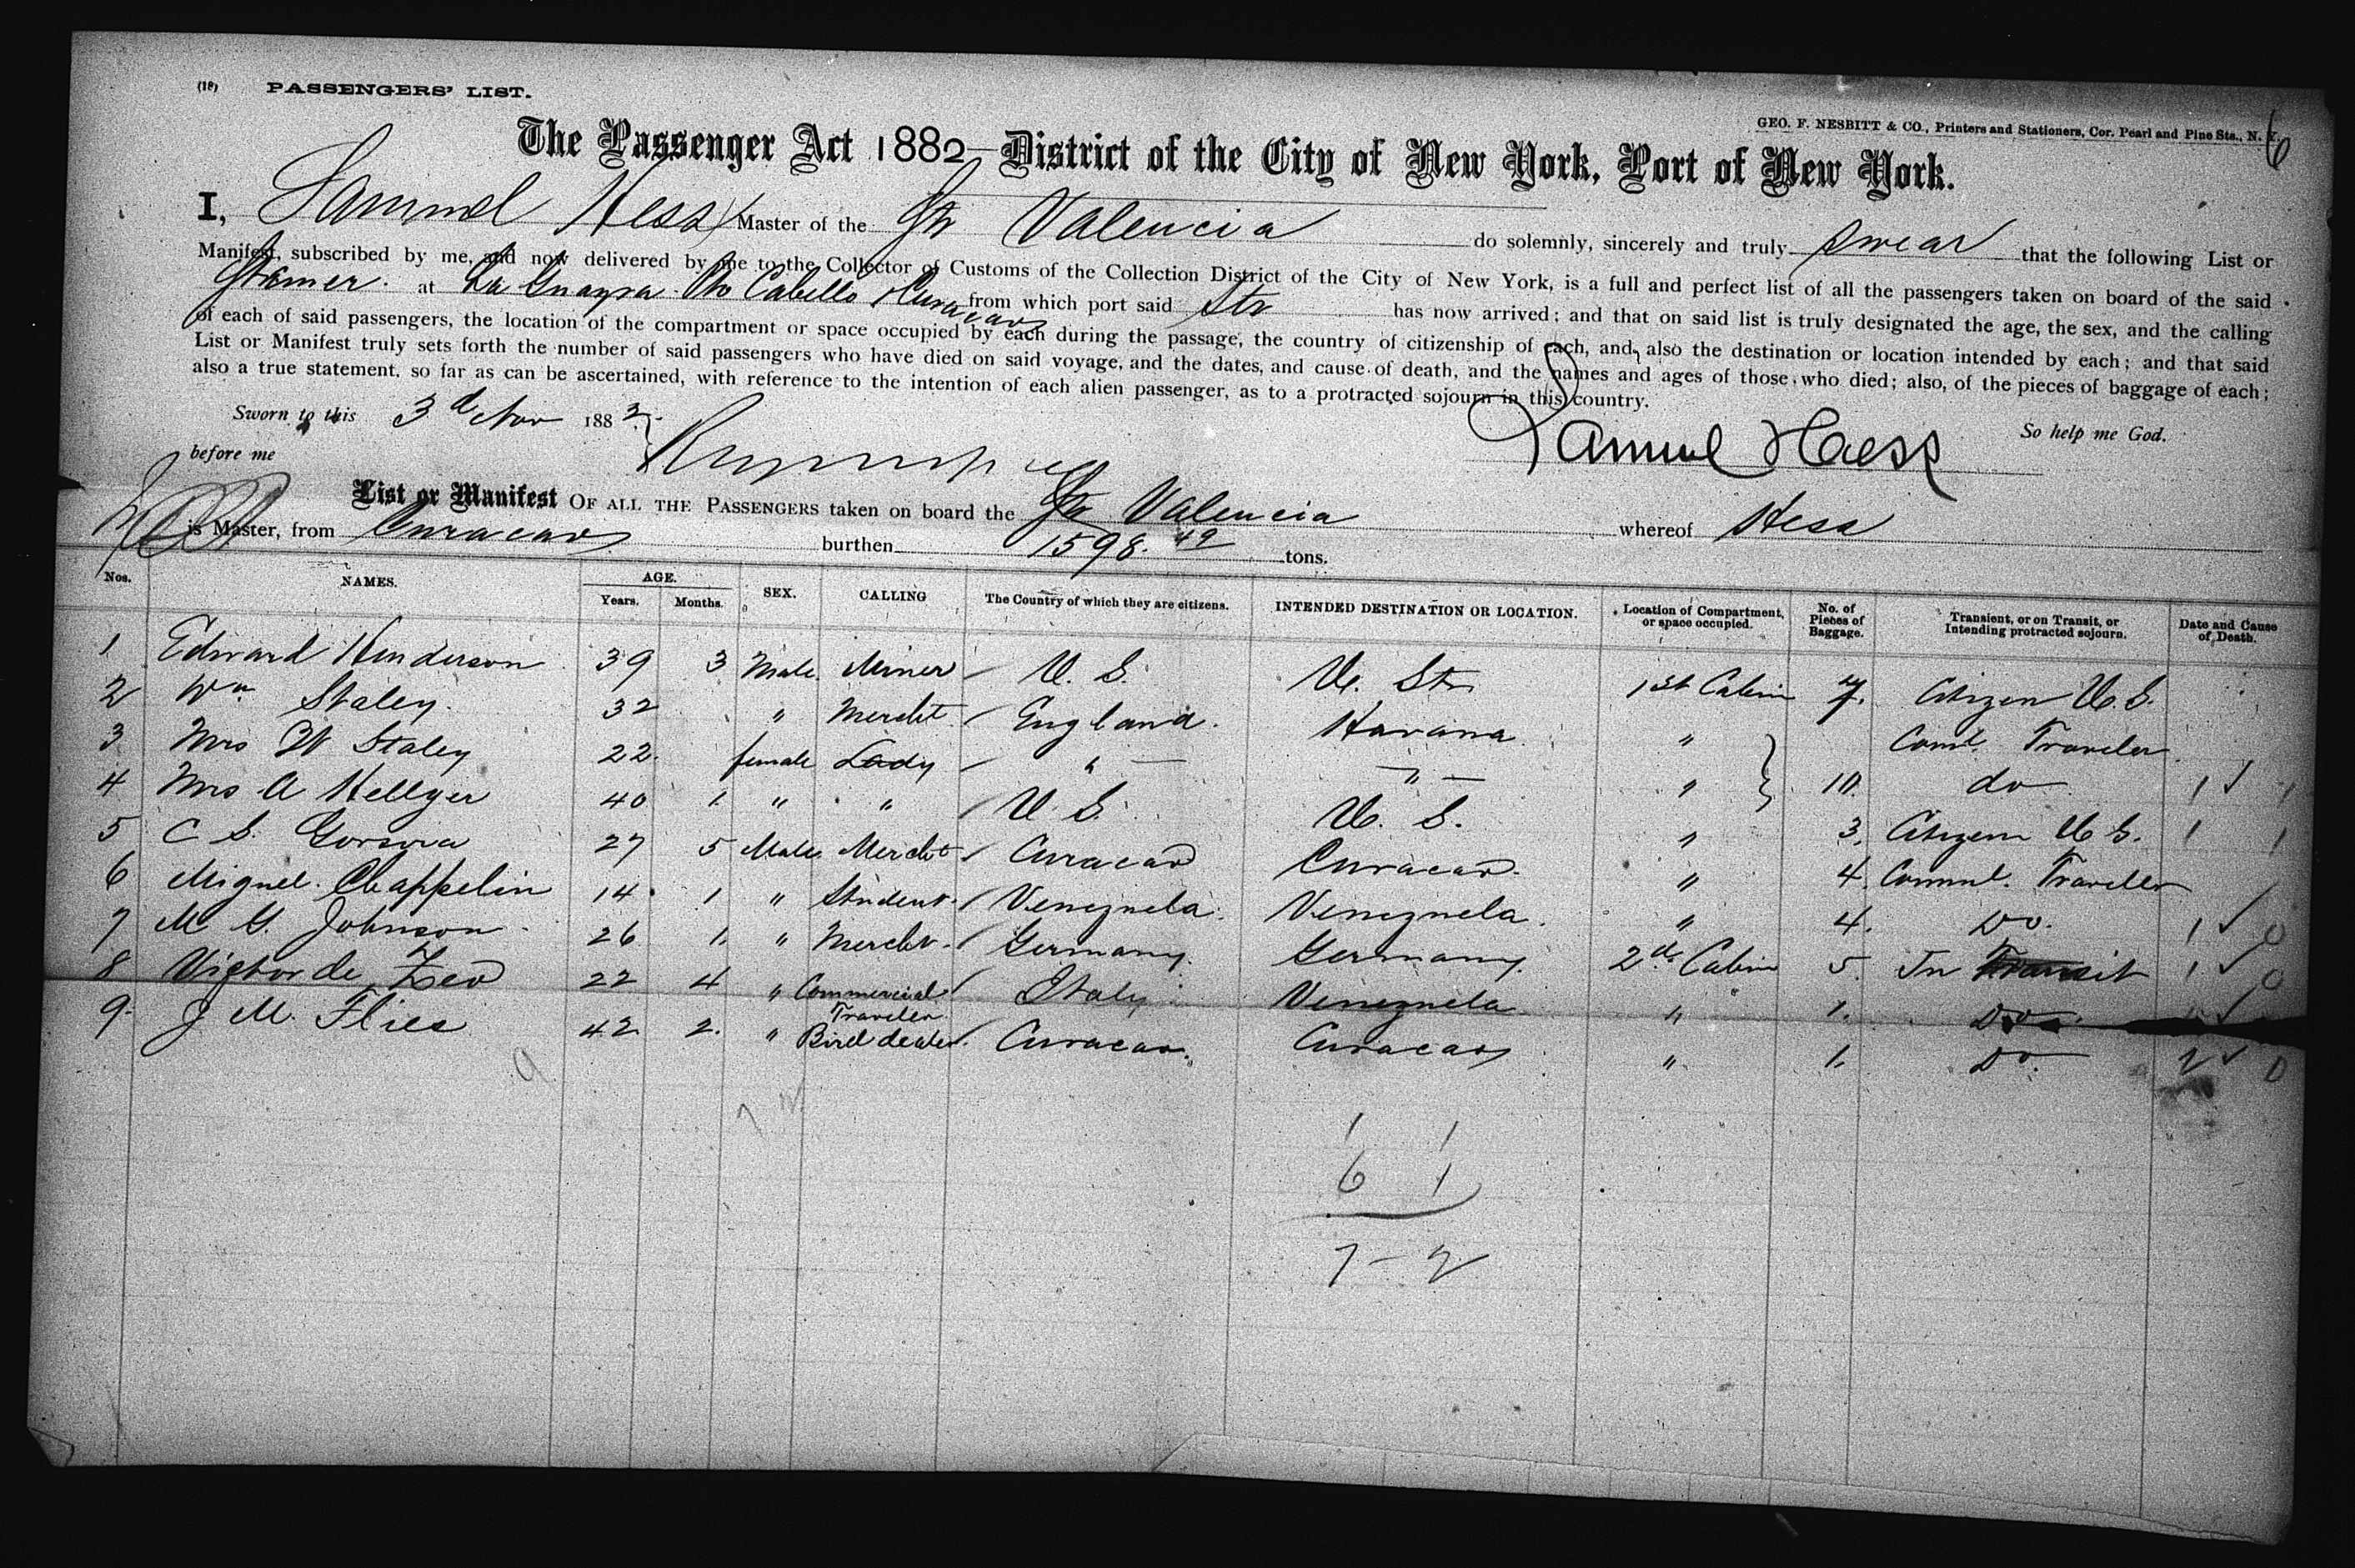 (18) PASSENGERS' LIST.
GEO. F. NESBITT & CO., Printers and Stationers, Cor. Pearl and Pine Sts., N. Y.
6
The Passenger Act 1882 — District of the City of New York, Port of New York.
I, Samuel Hess Master of the Str Valencia do solemnly, sincerely and truly swear that the following List or
Manifest, subscribed by me, and now delivered by me to the Collector of Customs of the Collection District of the City of New York, is a full and perfect list of all the passengers taken on board of the said
Steamer. at La Guayra Pto Cabello & Curacao from which port said Str has now arrived; and that on said list is truly designated the age, the sex, and the calling
of each of said passengers, the location of the compartment or space occupied by each during the passage, the country of citizenship of each, and, also the destination or location intended by each; and that said
List or Manifest truly sets forth the number of said passengers who have died on said voyage, and the dates, and cause of death, and the names and ages of those who died; also, of the pieces of baggage of each;
also a true statement, so far as can be ascertained, with reference to the intention of each alien passenger, as to a protracted sojourn in this country.
Sworn to this 3d Nov 1883 So help me God.
before me Samuel Hess
List or Manifest OF ALL THE PASSENGERS taken on board the Str Valencia whereof Hess
is Master, from Curacao burthen 1598.49 tons.
Nos. NAMES. AGE. Years. Months. SEX. CALLING The Country of which they are citizens. INTENDED DESTINATION OR LOCATION. Location of Compartment, or space occupied. No. of Pieces of Baggage. Transient, or on Transit, or Intending protracted sojourn. Date and Cause of Death.
1 Edward Henderson 39 3 Male. Miner U. S. U. Sts 1st Cabin 7. Citizen U. S.
2 Wm Staley. 32 " Mercht. England. Havana. " Coml. Traveler
3 Mrs W Staley 22. female Lady " — — " — " } 10. do 1 ✓ 1
4 Mrs A Hellyer 40 1. " " U. S. U. S. " 3. Citizen U. S. 1 1
5 C S. Gorsira 27 5 Male. Mercht Curacao Curacao. " 4. Comml. Traveller
6 Miguel. Chappelin 14 1 " Student. Venezuela. Venezuela. " 4. Do. 1 ✓ 0
7 M G. Johnson 26 1. " Mercht. Germany. Germany. 2d Cabin 5. In Transit 1 ✓ 0
8 Victor de Leo 22 4 " Commercial Traveler. Italy Venezuela " 1. Do. ✓
9. J M. Flies 42 2. " Bird dealer. Curacao. Curacao " 1. Do. 2 ✓ 0
9
1 1
6 1
7 - 2